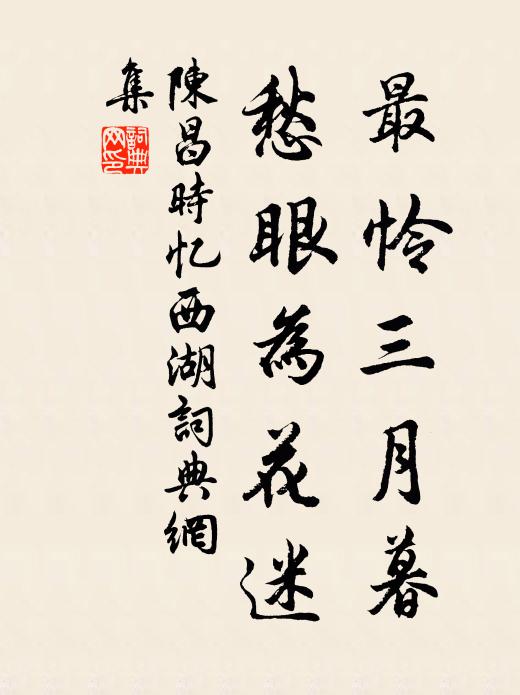 最怜三月暮
愁眼為花迷
陳昌時忆西湖詞典網
集
詞典
网印